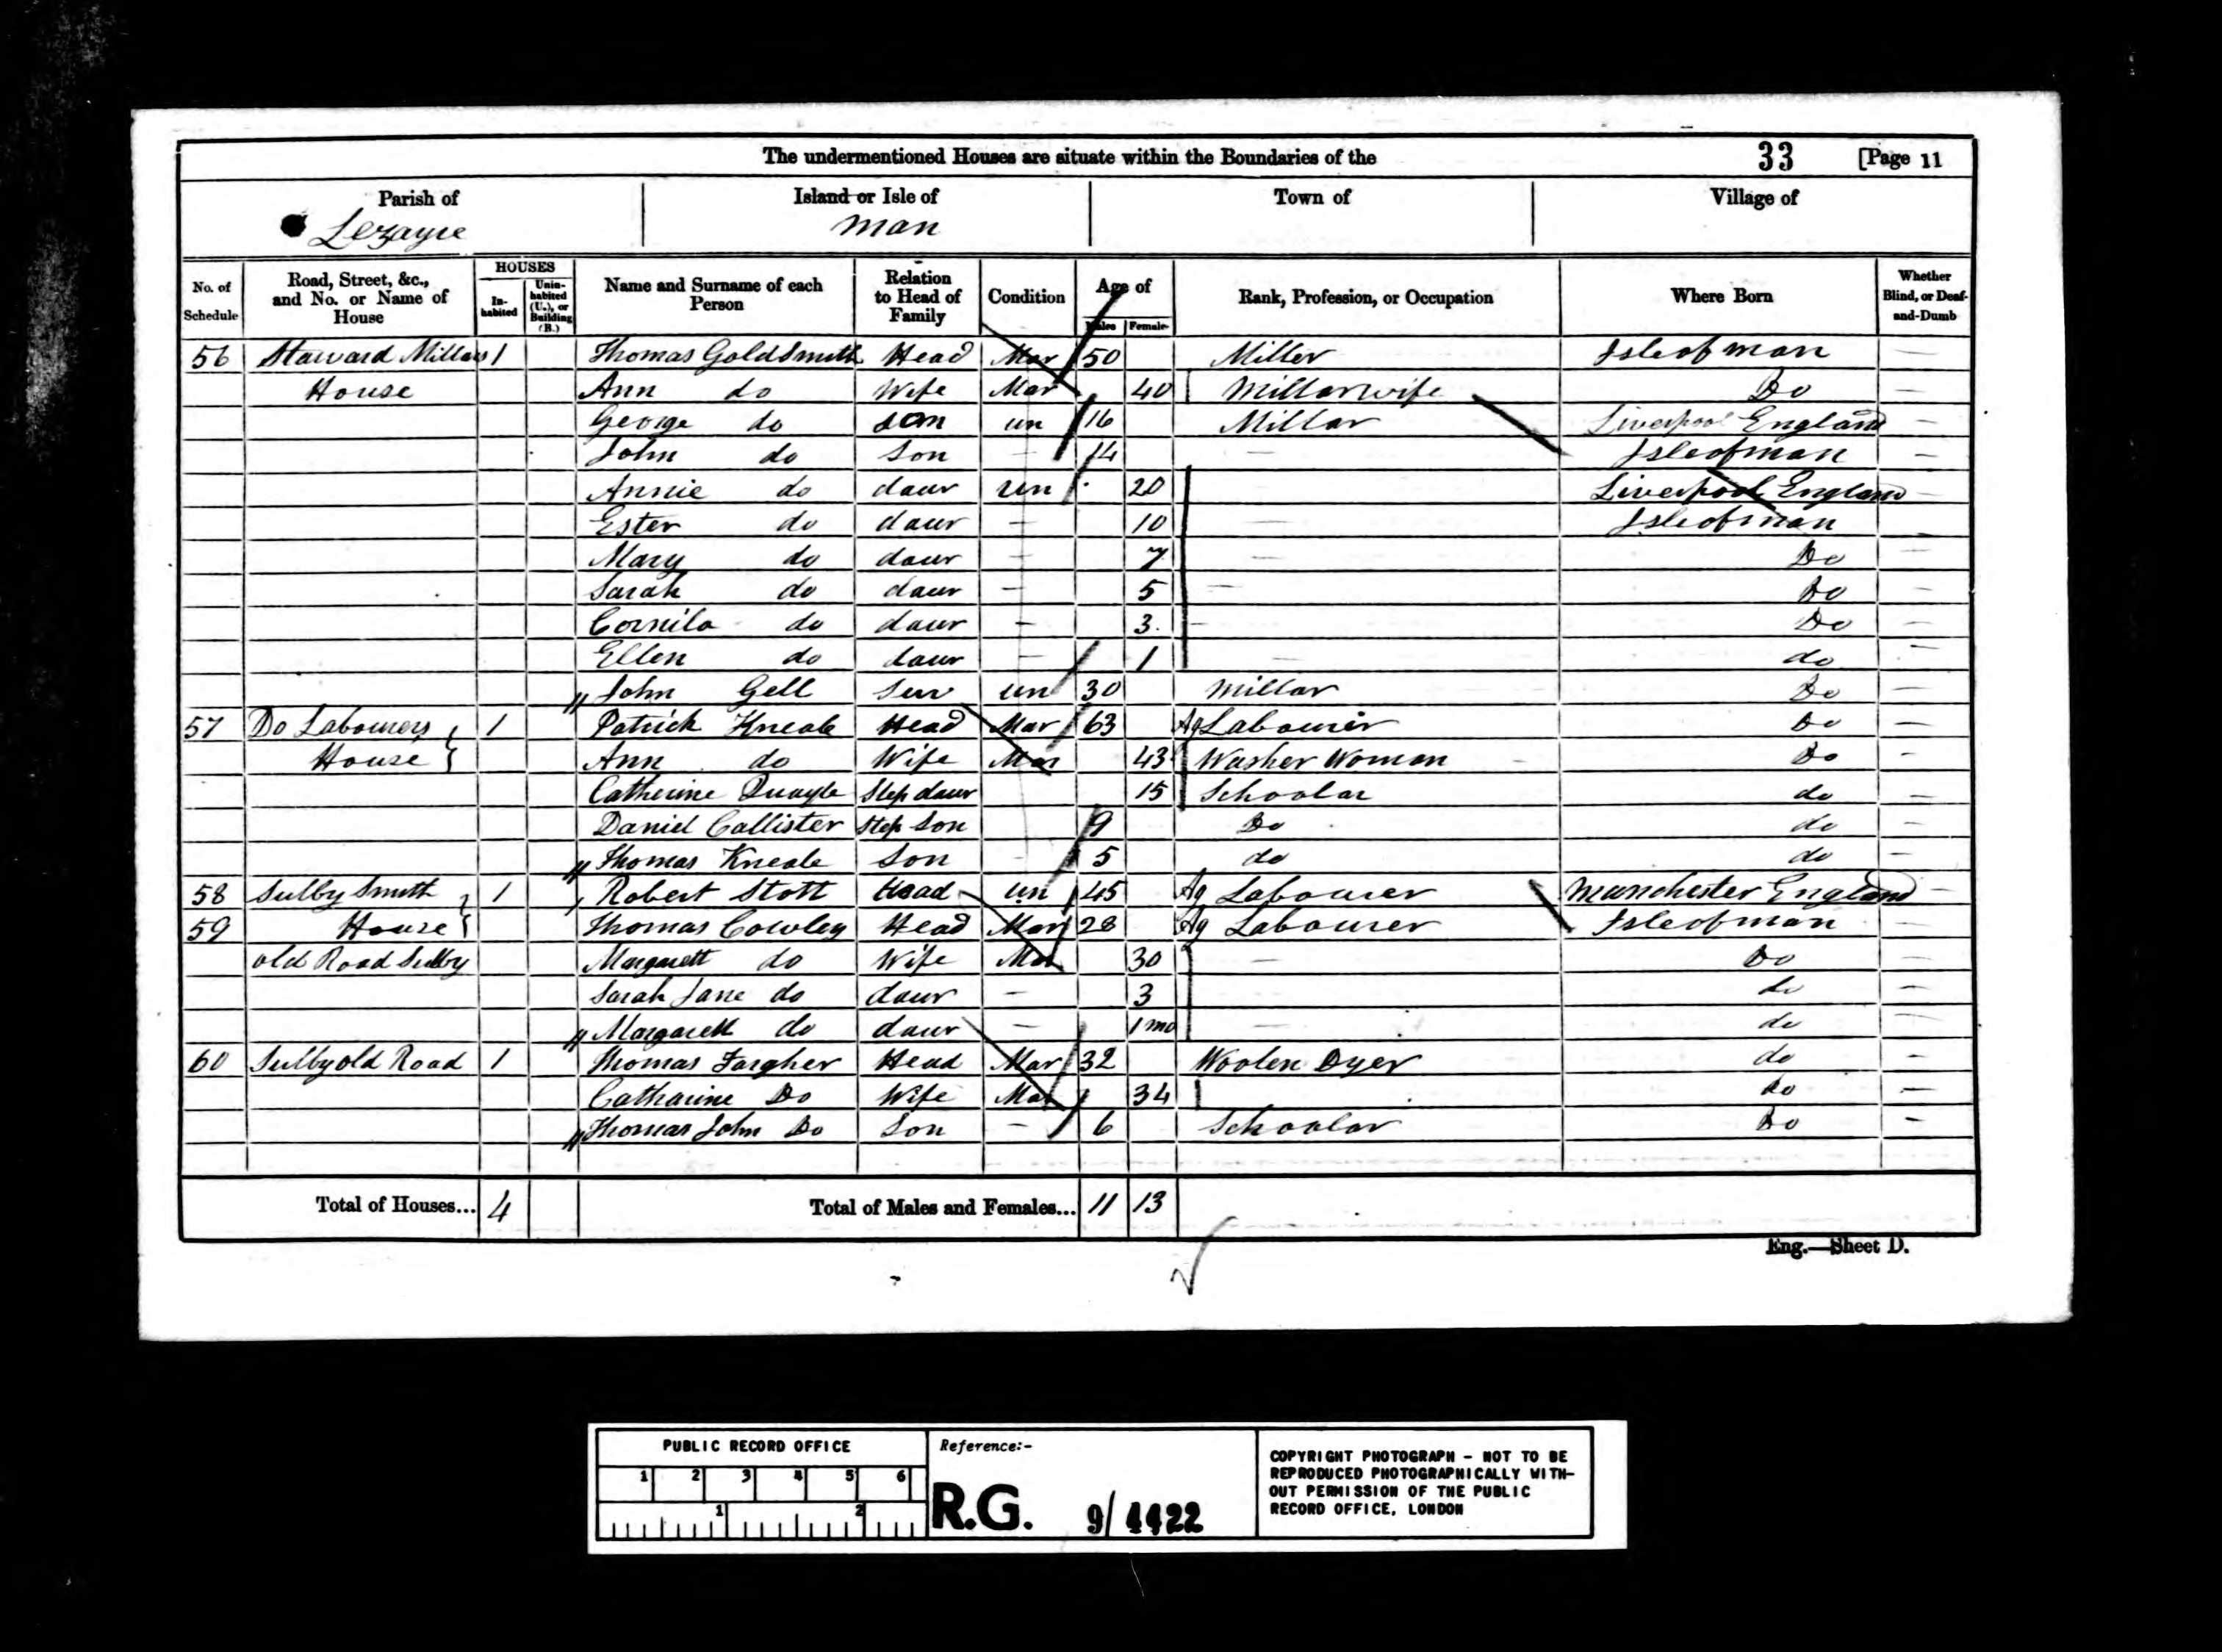 The undermentioned Houses are situate within the Boundaries of the 33 [Page 11
Parish of Island or Isle of Town of Village of
Lezayre Man
No. of Schedule Road, Street, &c., and No. or Name of House HOUSES In-habited Unin-habited (U.), or Building (B.) Name and Surname of each Person Relation to Head of Family Condition Age of Males Females Rank, Profession, or Occupation Where Born Whether Blind, or Deaf-and-Dumb
56 Staward Millars 1 Thomas Goldsmith Head Mar 50 Miller Isle of man —
House Ann do Wife Mar 40 Millar wife Do —
George do son un 16 Millar Liverpool England —
John do Son — 14 — Isle of man —
Annie do daur un 20 Liverpool England —
Ester do daur — 10 — Isle of man —
Mary do daur — 7 — Do —
Sarah do daur — 5 — Do —
Cornila do daur — 3 — Do —
Ellen do daur — 1 — do —
John Gell Serv un 30 Millar Do —
57 Do Labourers 1 Patrick Kneale Head Mar 63 Ag Labourer Do —
House Ann do Wife Mar 43 Washer Woman Do —
Catherine Quayle Step daur 15 Schoolar do —
Daniel Callister Step Son 9 Do do —
Thomas Kneale Son — 5 do do —
58 Sulby Smith 1 Robert Stott Head un 45 Ag Labourer Manchester England —
59 House Thomas Cowley Head Mar 28 Ag Labourer Isle of man —
old Road Sulby Margarett do Wife Mar 30 — Do —
Sarah Jane do daur — 3 do —
Margarett do daur — 1 mo — do —
60 Sulby old Road 1 Thomas Fargher Head Mar 32 Woolen Dyer do —
Catharine Do Wife Mar 34 do —
Thomas John Do Son — 6 Schoolar Do —
Total of Houses... 4 Total of Males and Females... 11 13
Eng.—Sheet D.
PUBLIC RECORD OFFICE
1 2 3 4 5 6
1 2
Reference:-
R.G. 9/4422
COPYRIGHT PHOTOGRAPH - NOT TO BE
REPRODUCED PHOTOGRAPHICALLY WITH-
OUT PERMISSION OF THE PUBLIC
RECORD OFFICE, LONDON